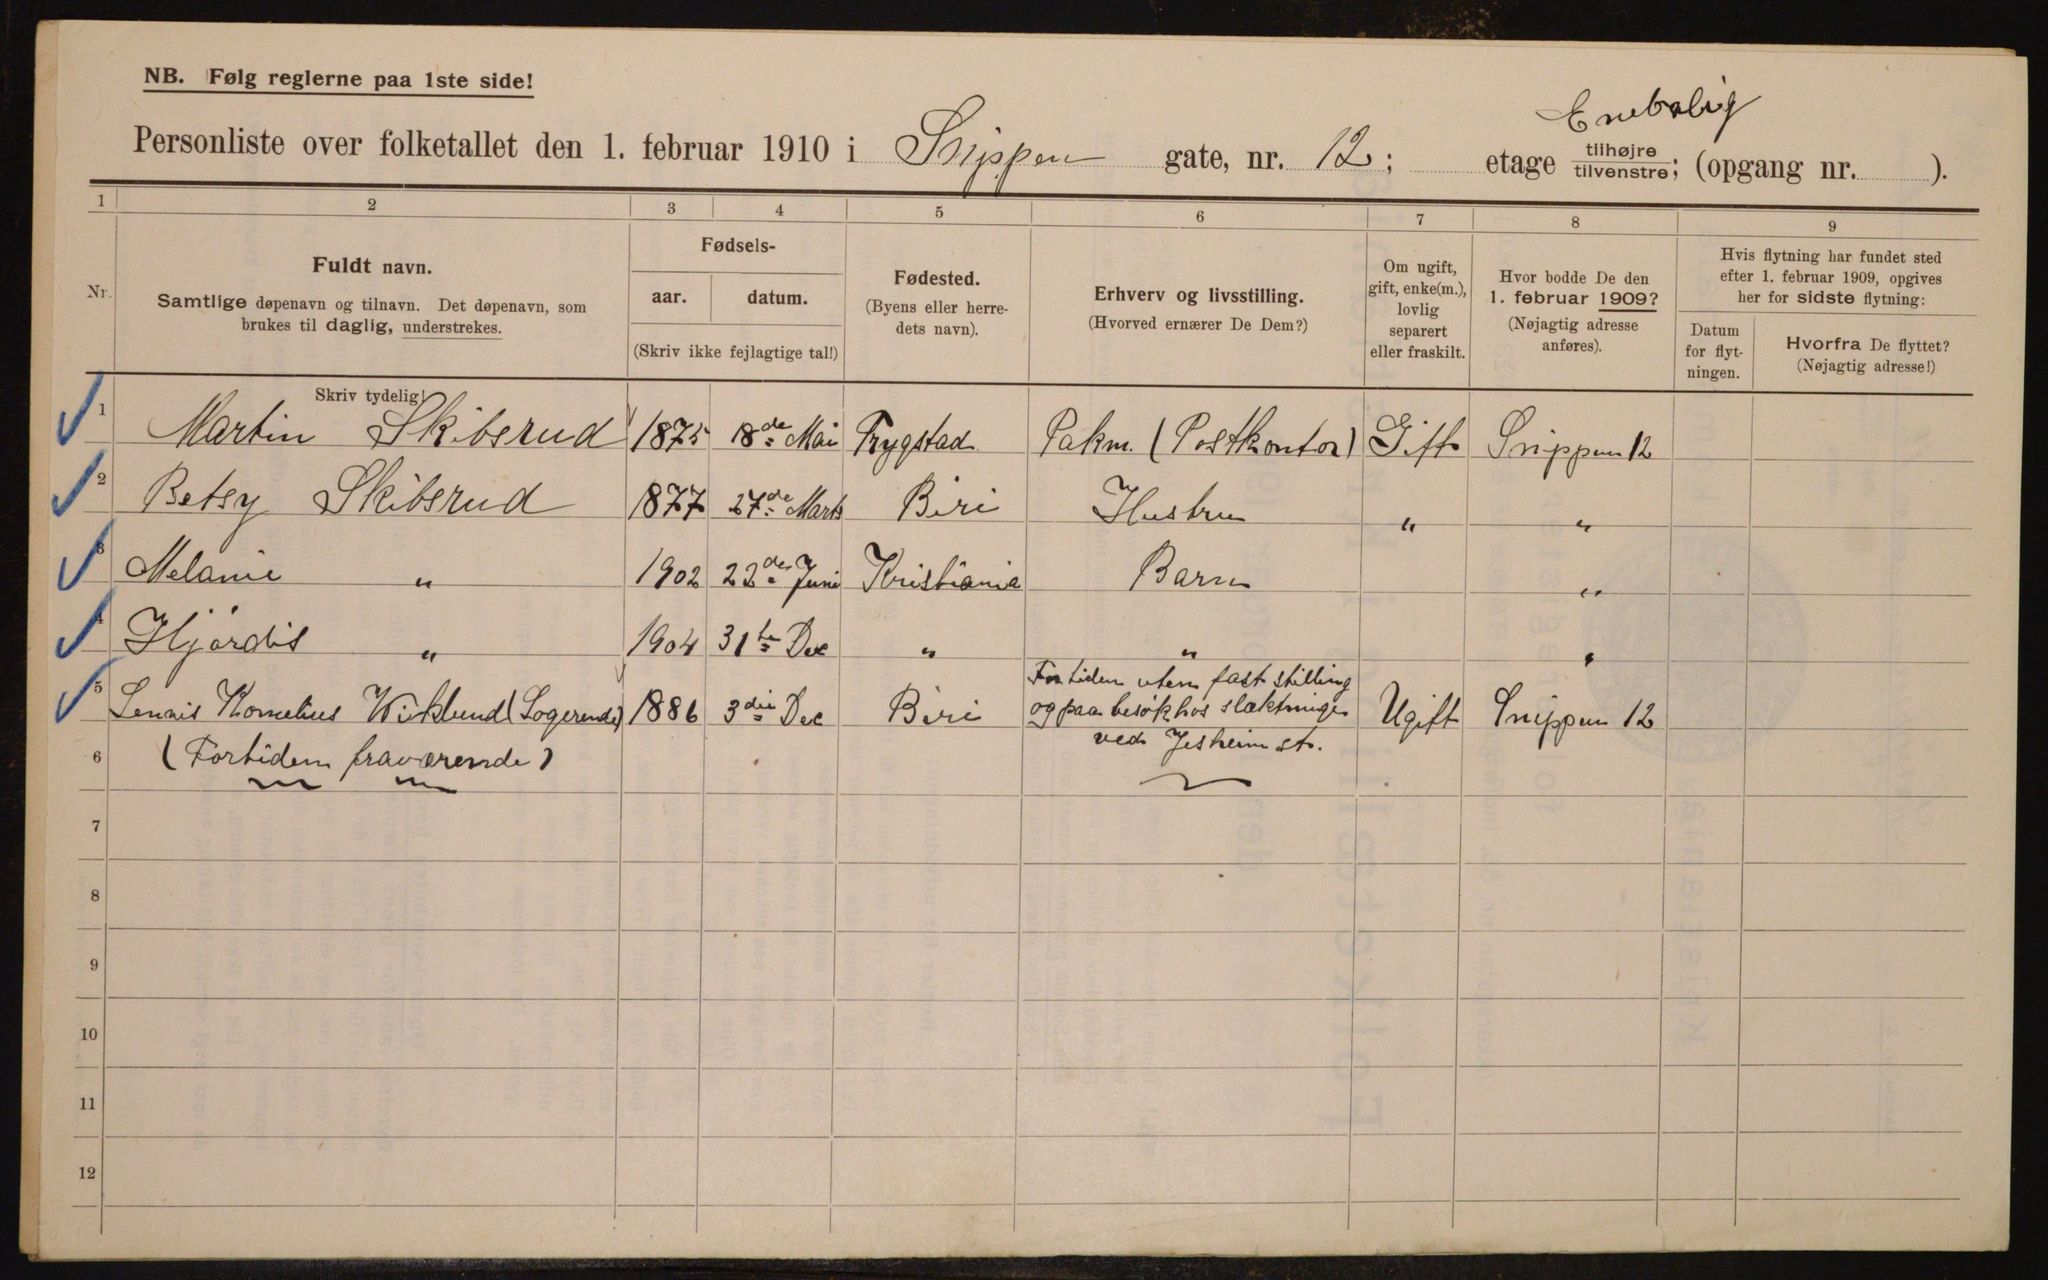 NB. Følg reglerne paa 1ste side!
Enebolig
Personliste over folketallet den 1. februar 1910 i Snippen gate, nr. 12; etage tilhøjre tilvenstre; (opgang nr. ).
1 2 3 4 5 6 7 8 9
Nr.
Fuldt navn.
Samtlige døpenavn og tilnavn. Det døpenavn, som
brukes til daglig, understrekes.
Skriv tydelig!
Fødsels-
aar. datum.
(Skriv ikke fejlagtige tal!)
Fødested.
(Byens eller herre-
dets navn).
Erhverv og livsstilling.
(Hvorved ernærer De Dem?)
Om ugift,
gift, enke(m.),
lovlig
separert
eller fraskilt.
Hvor bodde De den
1. februar 1909?
(Nøjagtig adresse
anføres).
Hvis flytning har fundet sted
efter 1. februar 1909, opgives
her for sidste flytning:
Datum
for flyt-
ningen.
Hvorfra De flyttet?
(Nøjagtig adresse!)
1 Martin Skibsrud 1875 18de Mai Trygstad Pakm. (Postkontor) Gift Snippen 12
2 Betsy Skibsrud 1877 27de Marts Biri Hustru " "
3 Melanie " 1902 22de Juni Kristiania Barn "
4 Hjördis " 1904 31te Dec " " "
5 Lenais Kornelius Wiklund (Logerende) 1886 3die Dec Biri For tiden uten fast stilling
og paa besök hos slæktninge
ved Jesheim st. Ugift Snippen 12
6 (Fortiden fraværende)
7
8
9
10
11
12